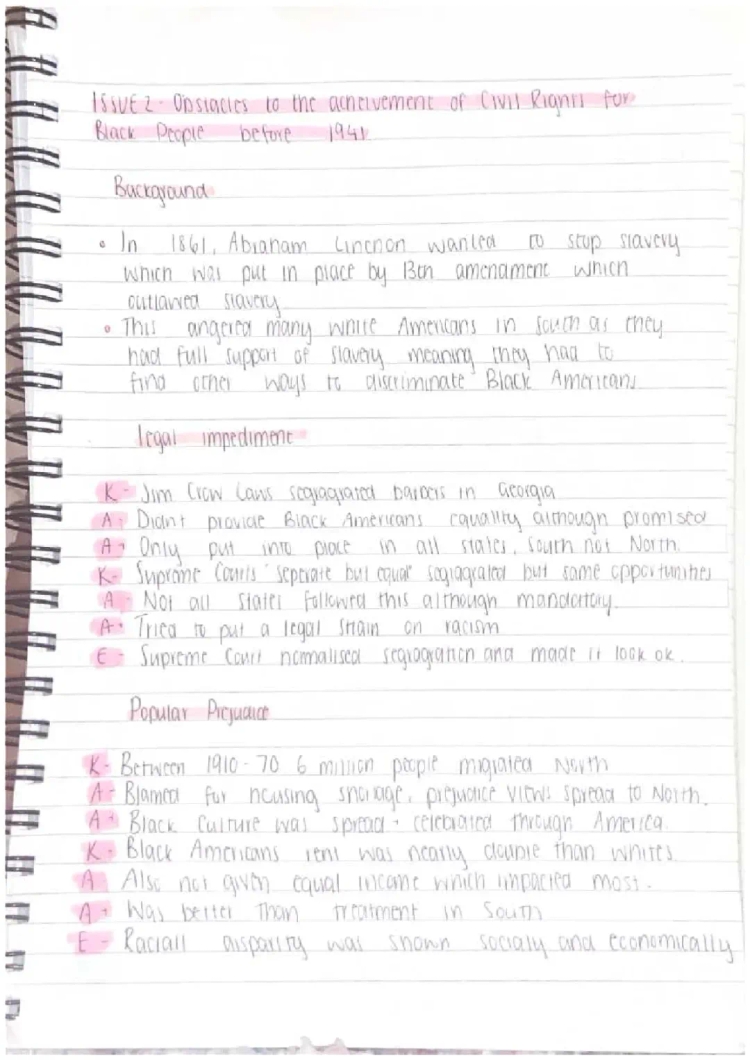 ISSUE 2 - Obstacles to the acheivement of Civil Rights for
Black People before 1941
Background
• In 1861, Abraham Lincnon wanted to stop slavery
which was put in place by 13th amendament which
outlawed slavery
• This angered many white Americans in South as they
had full support of slavery meaning they had to
find other ways to discriminate Black Americans
legal impediment
K - Jim Crow Laws segragrated barbers in Georgia
A - Didn't provide Black Americans equality although promised
A + Only put into place in all states, South not North.
K - Supreme Courts 'seperate but equal' sagragrated but same opportunities
A - Not all states followed this although mandortory.
A + Tried to put a legal strain on racism
E - Supreme Court normalised segragration and made it look ok.
Popular Prejudice
K - Between 1910-70 6 million people migrated North
A - Blamed for housing shortage, prejudice views spread to North.
A + Black Culture was spread + celebrated through America.
K - Black Americans rent was nearly double than whites.
A - Also not given equal income which impacted most.
A + Was better than treatment in South
E - Raciall disparity was shown socialy and economically